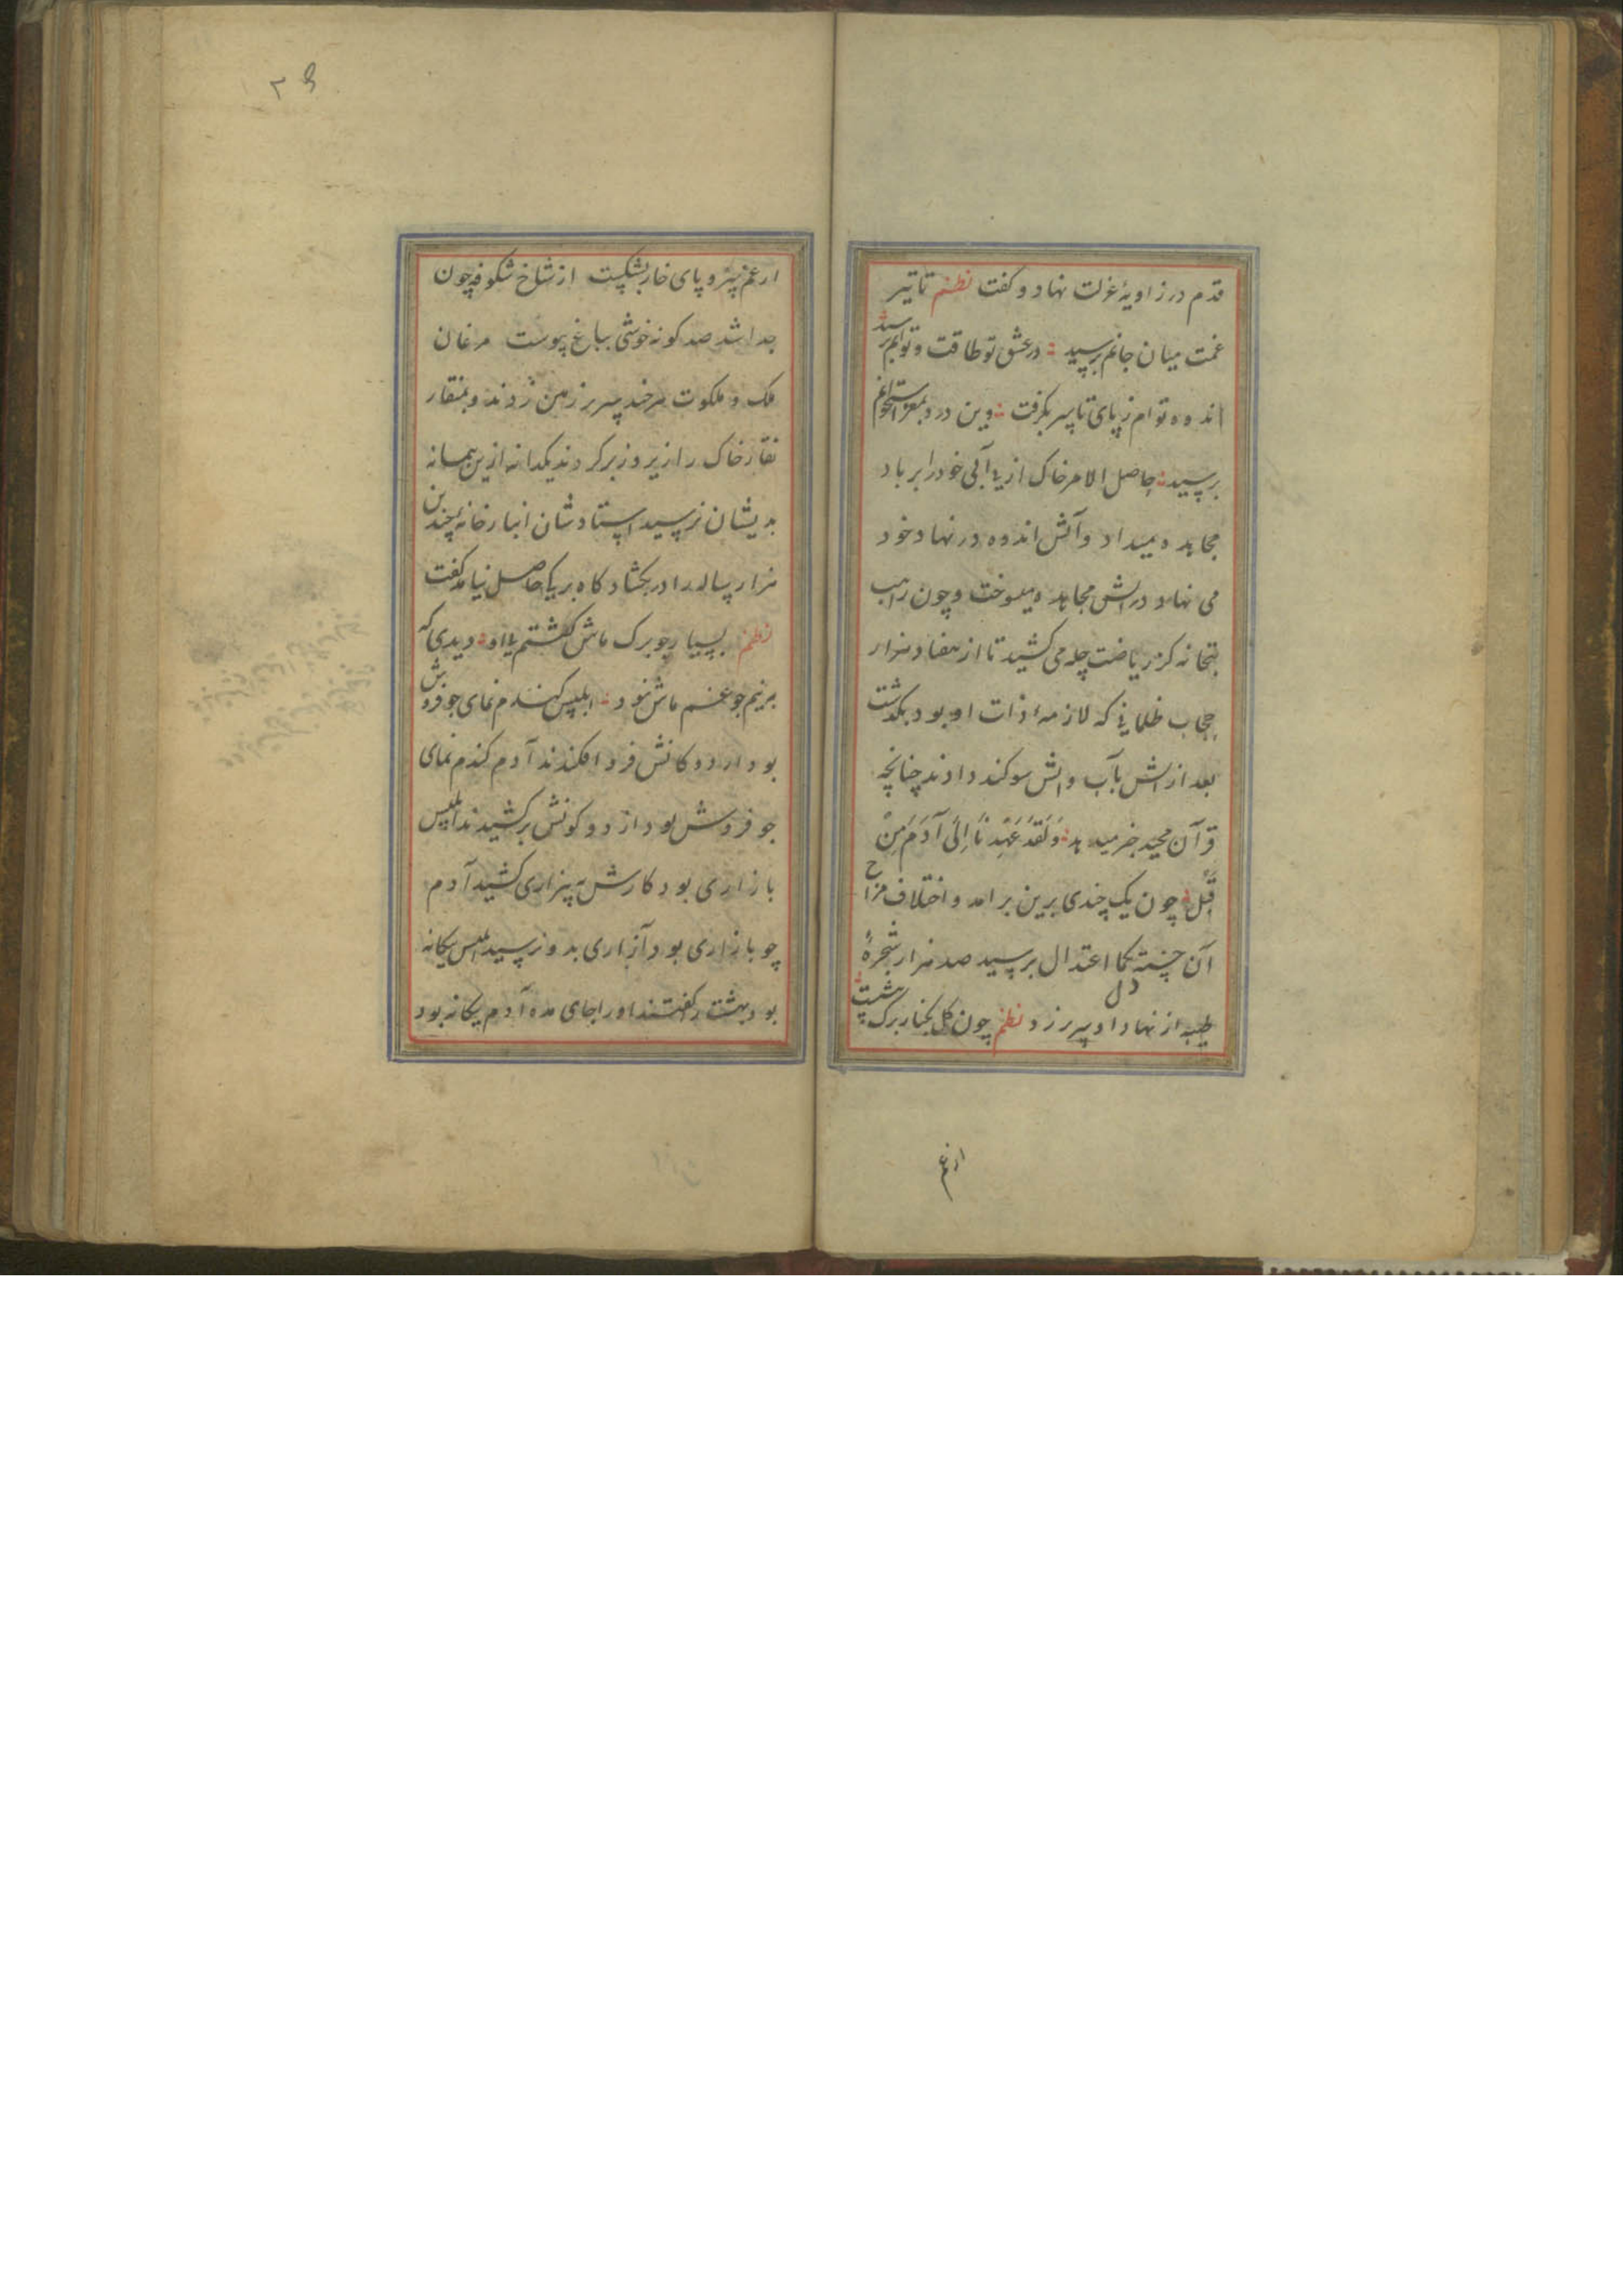 قدم در زاویهٔ عزلت نهاد و کفت نظم تا تیر
غمت میان جانم برسید در عشق تو طاقت و توانم برسید
اندوه توام ز پای تا سر بکرفت وین درد بمغز استخوانم
برسید حاصل الامر خاک از بی آبی خود را بر باد
مجاهده میداد و آتش اندوه در نهاد خود
می نهاد و در آتش مجاهده میسوخت و چون راهب
بتخانه کز ریاضت چله می کشید تا از هفتاد هزار
حجاب ظلمانی که لازمهٔ ذات او بود بکذشت
بعد ازانش بآب و آتش سوکند دادند چنانچه
قرآن مجید خبر میدهد وَلَقَدْ عَهِدْنَا اِلَی آدَمَ مِنْ
قَبْل چون یک چندی برین برامد و اختلاف مزاج
آن خسته بکمال اعتدال برسید صد هزار شجرهٔ
طیبه از نهاد او سر برزد نظم چون کل بکنار برک
ارغم
۲۹
ارغم سر و پای خار بشکست از شاخ شکوفه چون
جدا شد صد کونه خوشی بباغ پیوست مرغان
ملک و ملکوت هر چند سر بر زمین زدند و بمنقار
نقار خاک را زیر و زبر کردند یکدانه ازین همسانه
بدیشان نرسید استادشان انبارخانهٔ چندین
هزار ساله را در بکشاد کاه بریکا حاصل نیامد کفت
نظم بسیار چو برک ماش کشتم با او دیدی که
برنیم جو غم ماش نبود ابلیس کندم نمای جو فروش
بود از دوکانش فرو افکندند آدم کندم نمای
جو فروش بود از دو کونش برکشیدند ابلیس
بازاری بود کارش به بیزاری کشید آدم
چو بازاری بود آزاری بدو نرسید ابلیس یکانه
بود بهشت را کفتند او را جای مده آدم یکانه بود